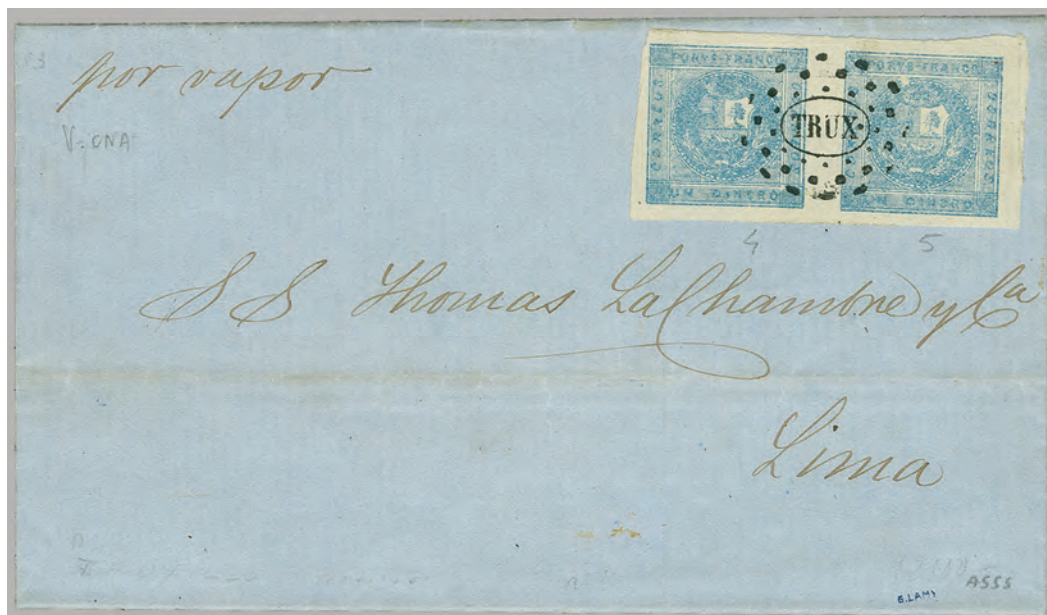 por vapor
V. ONA
PORTE FRANCO
CORREOS
UN DINERO
PORTE FRANCO
CORREOS
UN DINERO
TRUX.
4 5
S S Thomas LaChambre y Ca
Lima
A555